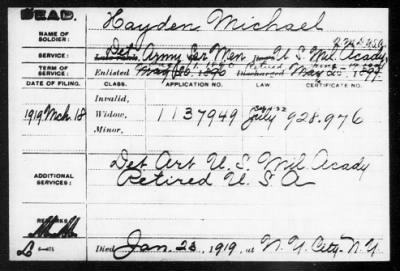 DEAD.
NAME OF SOLDIER: Hayden Michael
Q.M.D. U.S.A.
SERVICE: Det Army Ser Men U S Mil. Acady
TERM OF SERVICE: Enlisted 1890 Discharged May 1897.
DATE OF FILING. CLASS. APPLICATION NO. LAW CERTIFICATE NO.
Invalid,
1919 Mch 18 Widow, 1137949 July 928.976
Minor,
ADDITIONAL SERVICES: Det Art U. S. Mil Acady
Retired U. S. A
REMARKS:
Died Jan. 23, 1919, at N. Y. City N. Y.